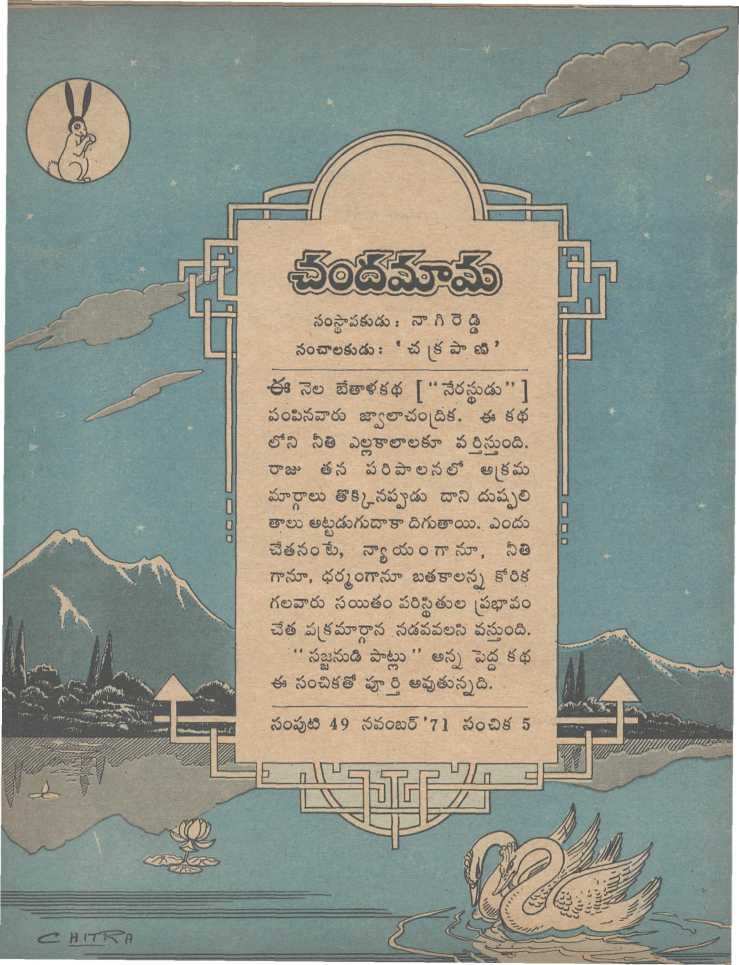 చందమామ
సంస్థాపకుడు : నా గి రె డ్డి
సంచాలకుడు : ‘ చ క్ర పా ణి ’
ఈ నెల బేతాళకథ [ “ నేరస్థుడు ” ]
పంపినవారు జ్వాలాచంద్రిక. ఈ కథ
లోని నీతి ఎల్లకాలాలకూ వర్తిస్తుంది.
రాజు తన పరిపాలనలో అక్రమ
మార్గాలు తొక్కినప్పుడు దాని దుష్ఫలి
తాలు అట్టడుగుదాకా దిగుతాయి. ఎందు
చేతనంటే, న్యాయంగానూ, నీతి
గానూ, ధర్మంగానూ బతకాలన్న కోరిక
గలవారు సయితం పరిస్థితుల ప్రభావం
చేత వక్రమార్గాన నడవవలసి వస్తుంది.
“ సజ్జనుడి పాట్లు ” అన్న పెద్ద కథ
ఈ సంచికతో పూర్తి అవుతున్నది.
సంపుటి 49 నవంబర్ '71 సంచిక 5
CHITRA